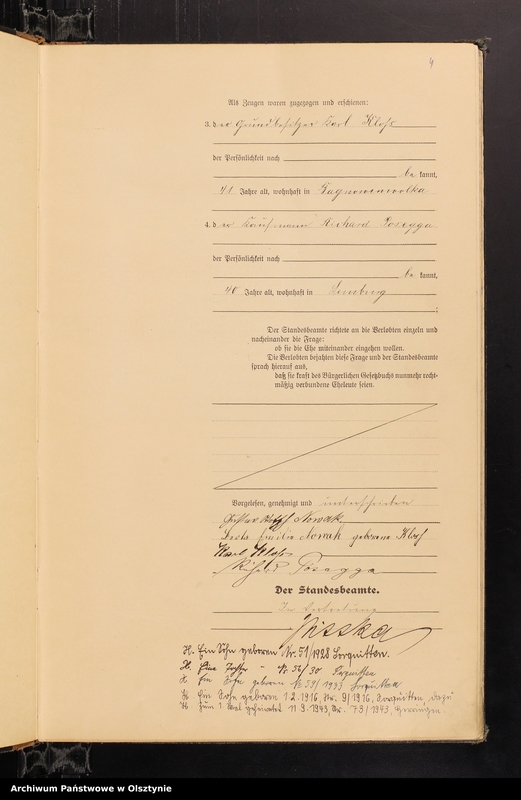 4
Als Zeugen waren zugezogen und erschienen:
3. der Grundbesitzer Karl Klohs
der Persönlichkeit nach
be kannt,
41 Jahre alt, wohnhaft in
4. der Kaufmann Richard Posegga
der Persönlichkeit nach
be kannt,
40 Jahre alt, wohnhaft in Sensburg
;
Der Standesbeamte richtete an die Verlobten einzeln und
nacheinander die Frage:
ob sie die Ehe miteinander eingehen wollen.
Die Verlobten bejahten diese Frage und der Standesbeamte
sprach hierauf aus,
daß sie kraft des Bürgerlichen Gesetzbuchs nunmehr recht-
mäßig verbundene Eheleute seien.
Vorgelesen, genehmigt und unterschrieben
Gustav Nowak
Emilie Nowak geborene
Karl
Richard Posegga
Der Standesbeamte.
In Vertretung
H. Ein Sohn geboren Nr. 51/1928 Sorquitten.
H. Eine Tochter " Nr. 56/30 Sorquitten
H. Ein Sohn geboren Nr. 59/1933 Sorquitten
H. Ein Sohn geboren 1.2.1916, Nr. 9/1916, Sorquitten, dazu
H. zum 1. Mal geheiratet 11.9.1943, Nr. 79/1943,
Archiwum Państwowe w Olsztynie